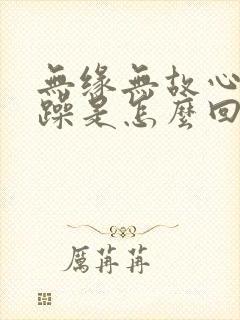 無緣無故心
躁是怎麼回
厲苒苒